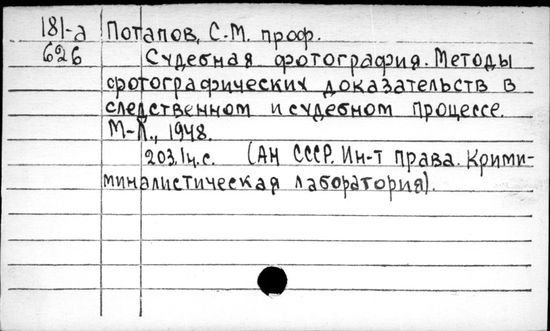 181-а Потапов, С.М. проф.
626 Судебная фотография. Методы
фотографических доказательств в
следственном и судебном процессе.
М-Л., 1948.
203,1 н.с. (АН СССР. Ин-т права. Крими-
миналистическая лаборатория).